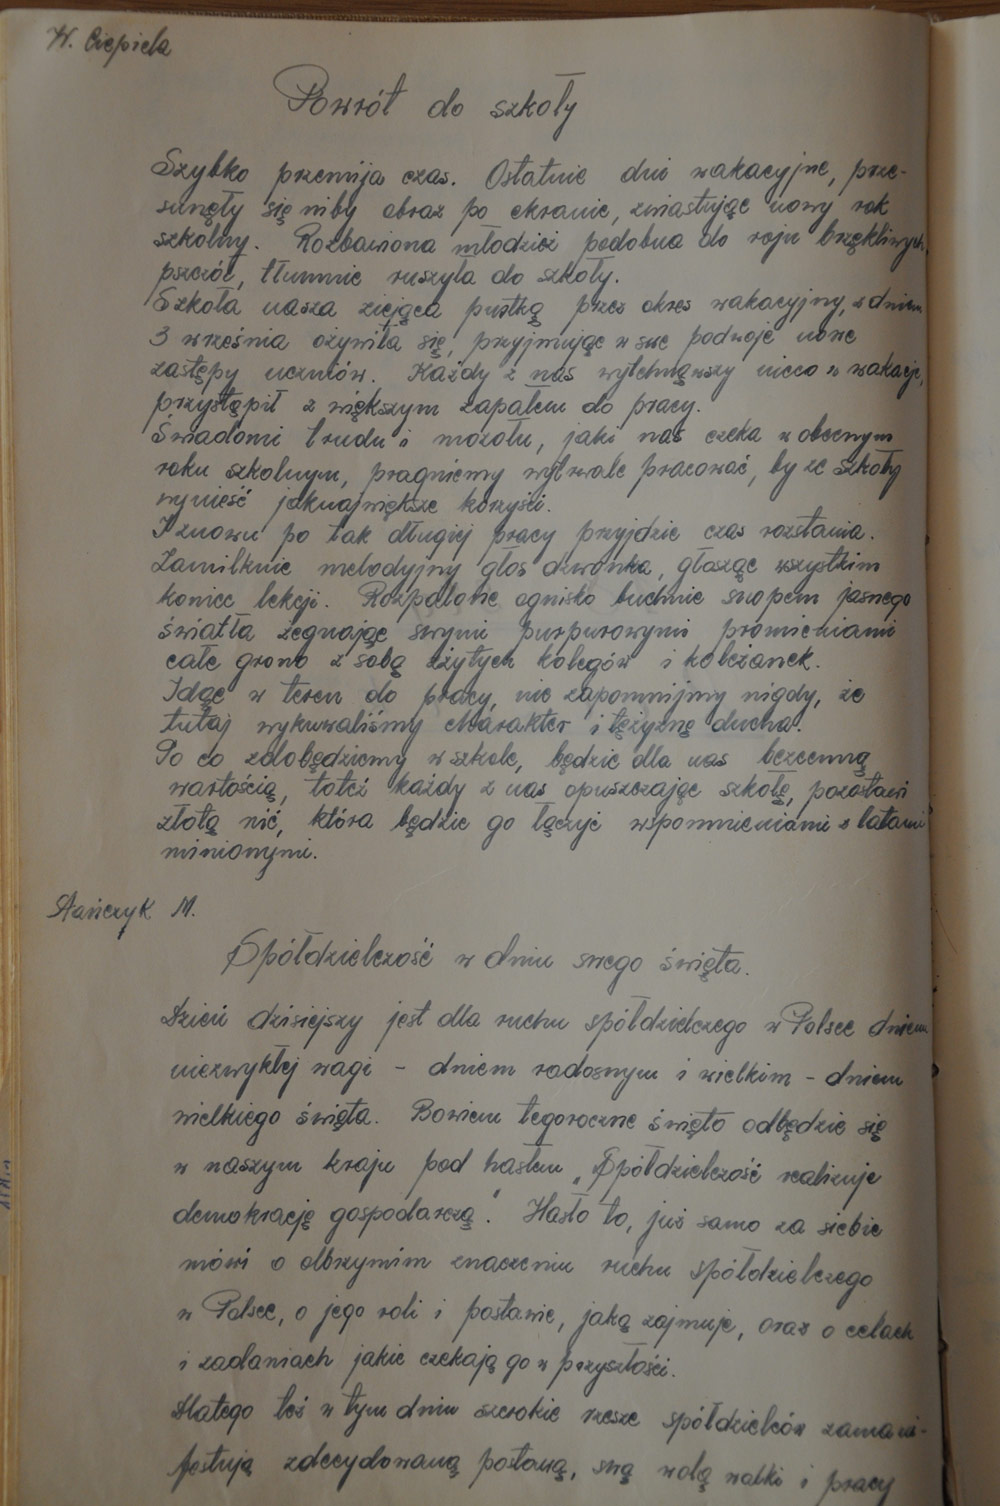 W. Ciepiela
Powrót do szkoły
Szybko przemija czas. Ostatnie dni wakacyjne, prze-
sunęły się niby obraz po ekranie, zwiastując nowy rok
szkolny. Rozbawiona młodzież podobna do roju brzękliwych
pszczół, tłumnie ruszyła do szkoły.
Szkoła nasza ziejąca pustką przez okres wakacyjny, z dniem
3 września ożywiła się, przyjmując w swe podwoje nowe
zastępy uczniów. Każdy z nas wytchnąwszy nieco w wakacje,
przystąpił z większym zapałem do pracy.
Świadomi trudu i mozołu, jaki nas czeka w obecnym
roku szkolnym, pragniemy wytrwale pracować, by ze szkoły
wynieść jaknajwiększe korzyści.
I znowu po tak długiej pracy przyjdzie czas rozstania.
Zamilknie melodyjny głos dzwonka, głosząc wszystkim
koniec lekcji. Rozpalone ognisko buchnie snopem jasnego
światła żegnając swymi purpurowymi promieniami
całe grono z sobą zżytych kolegów i koleżanek.
Idąc w teren do pracy, nie zapomnijmy nigdy, że
tutaj wykuwaliśmy charakter i tężyznę ducha.
To co zdobędziemy w szkole, będzie dla nas bezcenną
wartością, toteż każdy z nas opuszczając szkołę, pozostawi
złotą nić, która będzie go łączyć wspomnieniami z latami
minionymi.
Stańczyk M.
Spółdzielczość w dniu swego święta.
Dzień dzisiejszy jest dla ruchu spółdzielczego w Polsce dniem
niezwykłej wagi - dniem radosnym i wielkim - dniem
wielkiego święta. Bowiem tegoroczne święto odbędzie się
w naszym kraju pod hasłem „Spółdzielczość realizuje
demokrację gospodarczą". Hasło to, już samo za siebie
mówi o olbrzymim znaczeniu ruchu spółdzielczego
w Polsce, o jego roli i postawie, jaką zajmuje, oraz o celach
i zadaniach jakie czekają go w przyszłości.
Dlatego też w tym dniu szerokie rzesze spółdzielców zamani-
festują zdecydowaną postawą, swą wolą walki i pracy